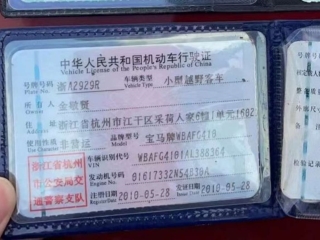 中华人民共和国机动车行驶证
Vehicle License of the People's Republic of China
号牌号码 浙A2929R 车辆类型 小型越野客车
Plate No. Vehicle Type
所有人 金敏贤
Owner
住址 浙江省杭州市江干区采荷人家6幢1单元1502
使用性质 非营运 品牌型号 宝马牌WBAFG410
Model
浙江省杭州
市公安局交
通警察支队
车辆识别代号 WBAFG4101AL388364
VIN
发动机号码
Engine No.
注册日期 2010-05-28 发证日期 2010-05-28
Register Date Issue Date